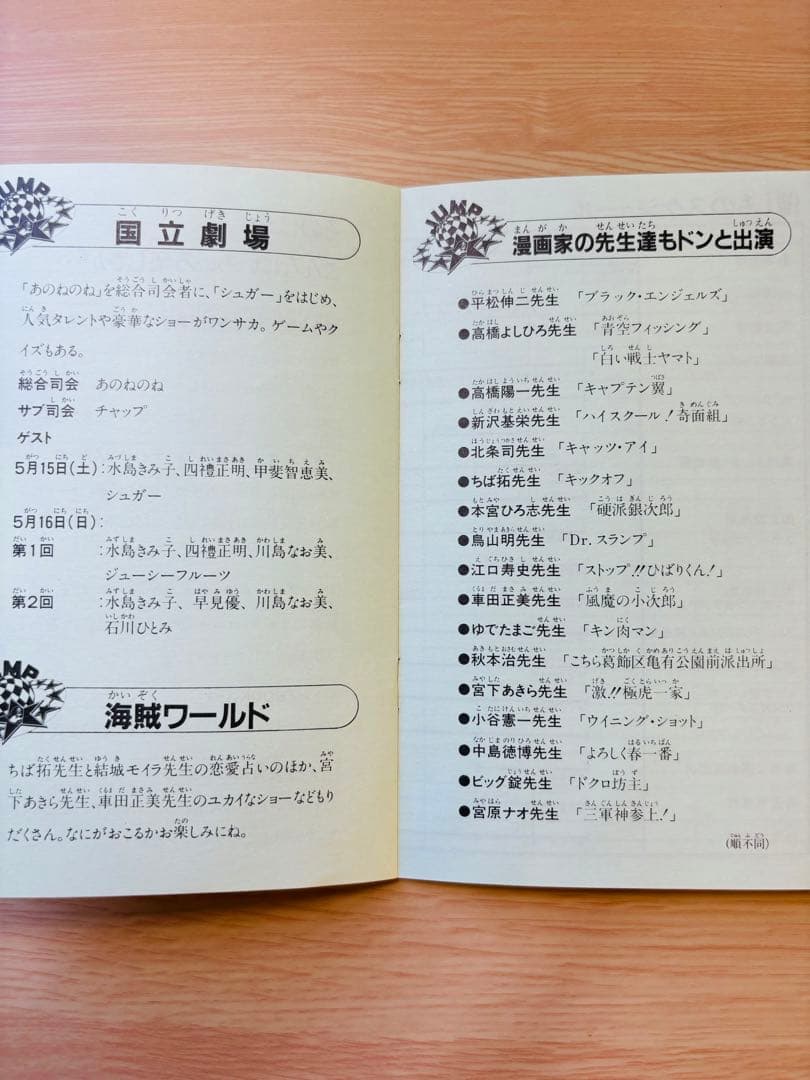 JUMP
こくりつげきじょう
国立劇場
「あのねのね」を総合司会者に、「シュガー」をはじめ、
人気タレントや豪華なショーがワンサカ。ゲームやク
イズもある。
総合司会 あのねのね
サブ司会 チャップ
ゲスト
5月15日(土):水島きみ子、四禮正明、甲斐智恵美、
シュガー
5月16日(日):
第1回 :水島きみ子、四禮正明、川島なお美、
ジューシーフルーツ
第2回 :水島きみ子、早見優、川島なお美、
石川ひとみ
JUMP
かいぞく
海賊ワールド
ちば拓先生と結城モイラ先生の恋愛占いのほか、宮
下あきら先生、車田正美先生のユカイなショーなどもり
だくさん。なにがおこるかお楽しみにね。
JUMP
まんがか せんせいたち しゅつえん
漫画家の先生達もドンと出演
●平松伸二先生 「ブラック・エンジェルズ」
●高橋よしひろ先生 「青空フィッシング」
「白い戦士ヤマト」
●高橋陽一先生 「キャプテン翼」
●新沢基栄先生 「ハイスクール!奇面組」
●北条司先生 「キャッツ・アイ」
●ちば拓先生 「キックオフ」
●本宮ひろ志先生 「硬派銀次郎」
●鳥山明先生 「Dr.スランプ」
●江口寿史先生 「ストップ!!ひばりくん!」
●車田正美先生 「風魔の小次郎」
●ゆでたまご先生 「キン肉マン」
●秋本治先生 「こちら葛飾区亀有公園前派出所」
●宮下あきら先生 「激!!極虎一家」
●小谷憲一先生 「ウイニング・ショット」
●中島徳博先生 「よろしく春一番」
●ビッグ錠先生 「ドクロ坊主」
●宮原ナオ先生 「三軍神参上!」
(順不同)